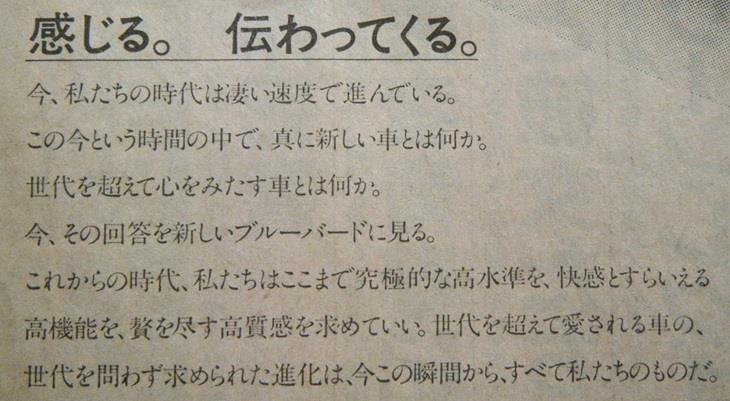 感じる。 伝わってくる。
今、私たちの時代は凄い速度で進んでいる。
この今という時間の中で、真に新しい車とは何か。
世代を超えて心をみたす車とは何か。
今、その回答を新しいブルーバードに見る。
これからの時代、私たちはここまで究極的な高水準を、快感とすらいえる
高機能を、贅を尽す高質感を求めていい。世代を超えて愛される車の、
世代を問わず求められた進化は、今この瞬間から、すべて私たちのものだ。